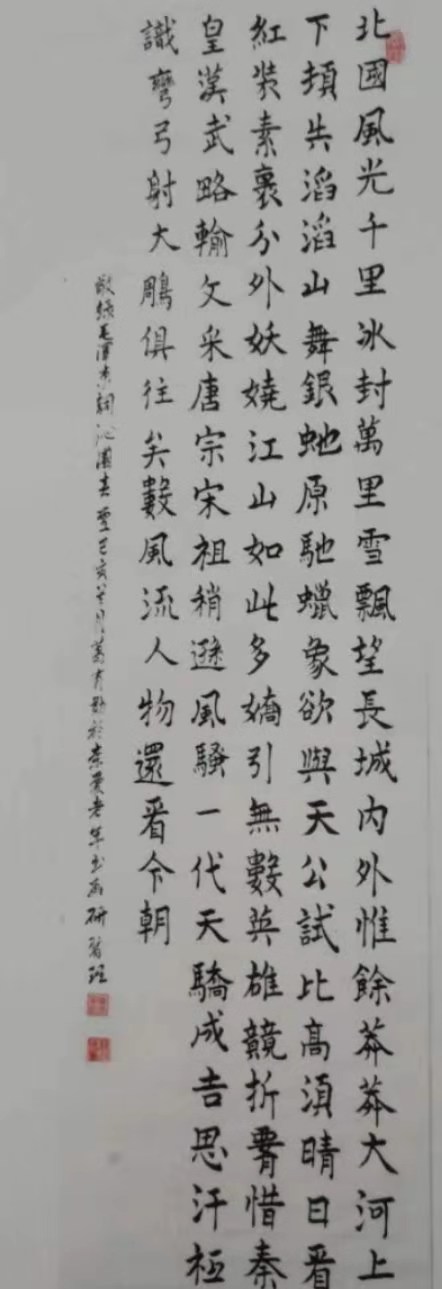 北國風光千里冰封萬里雪飄望長城內外惟餘莽莽大河上
下頓失滔滔山舞銀虵原馳蠟象欲與天公試比高須晴日看
紅裝素裹分外妖嬈江山如此多嬌引無數英雄競折腰惜秦
皇漢武略輸文采唐宗宋祖稍遜風騷一代天驕成吉思汗秖
識彎弓射大鵰俱往矣數風流人物還看今朝
敬錄毛澤東詞沁園春雪己亥月萬於老年書畫研習班